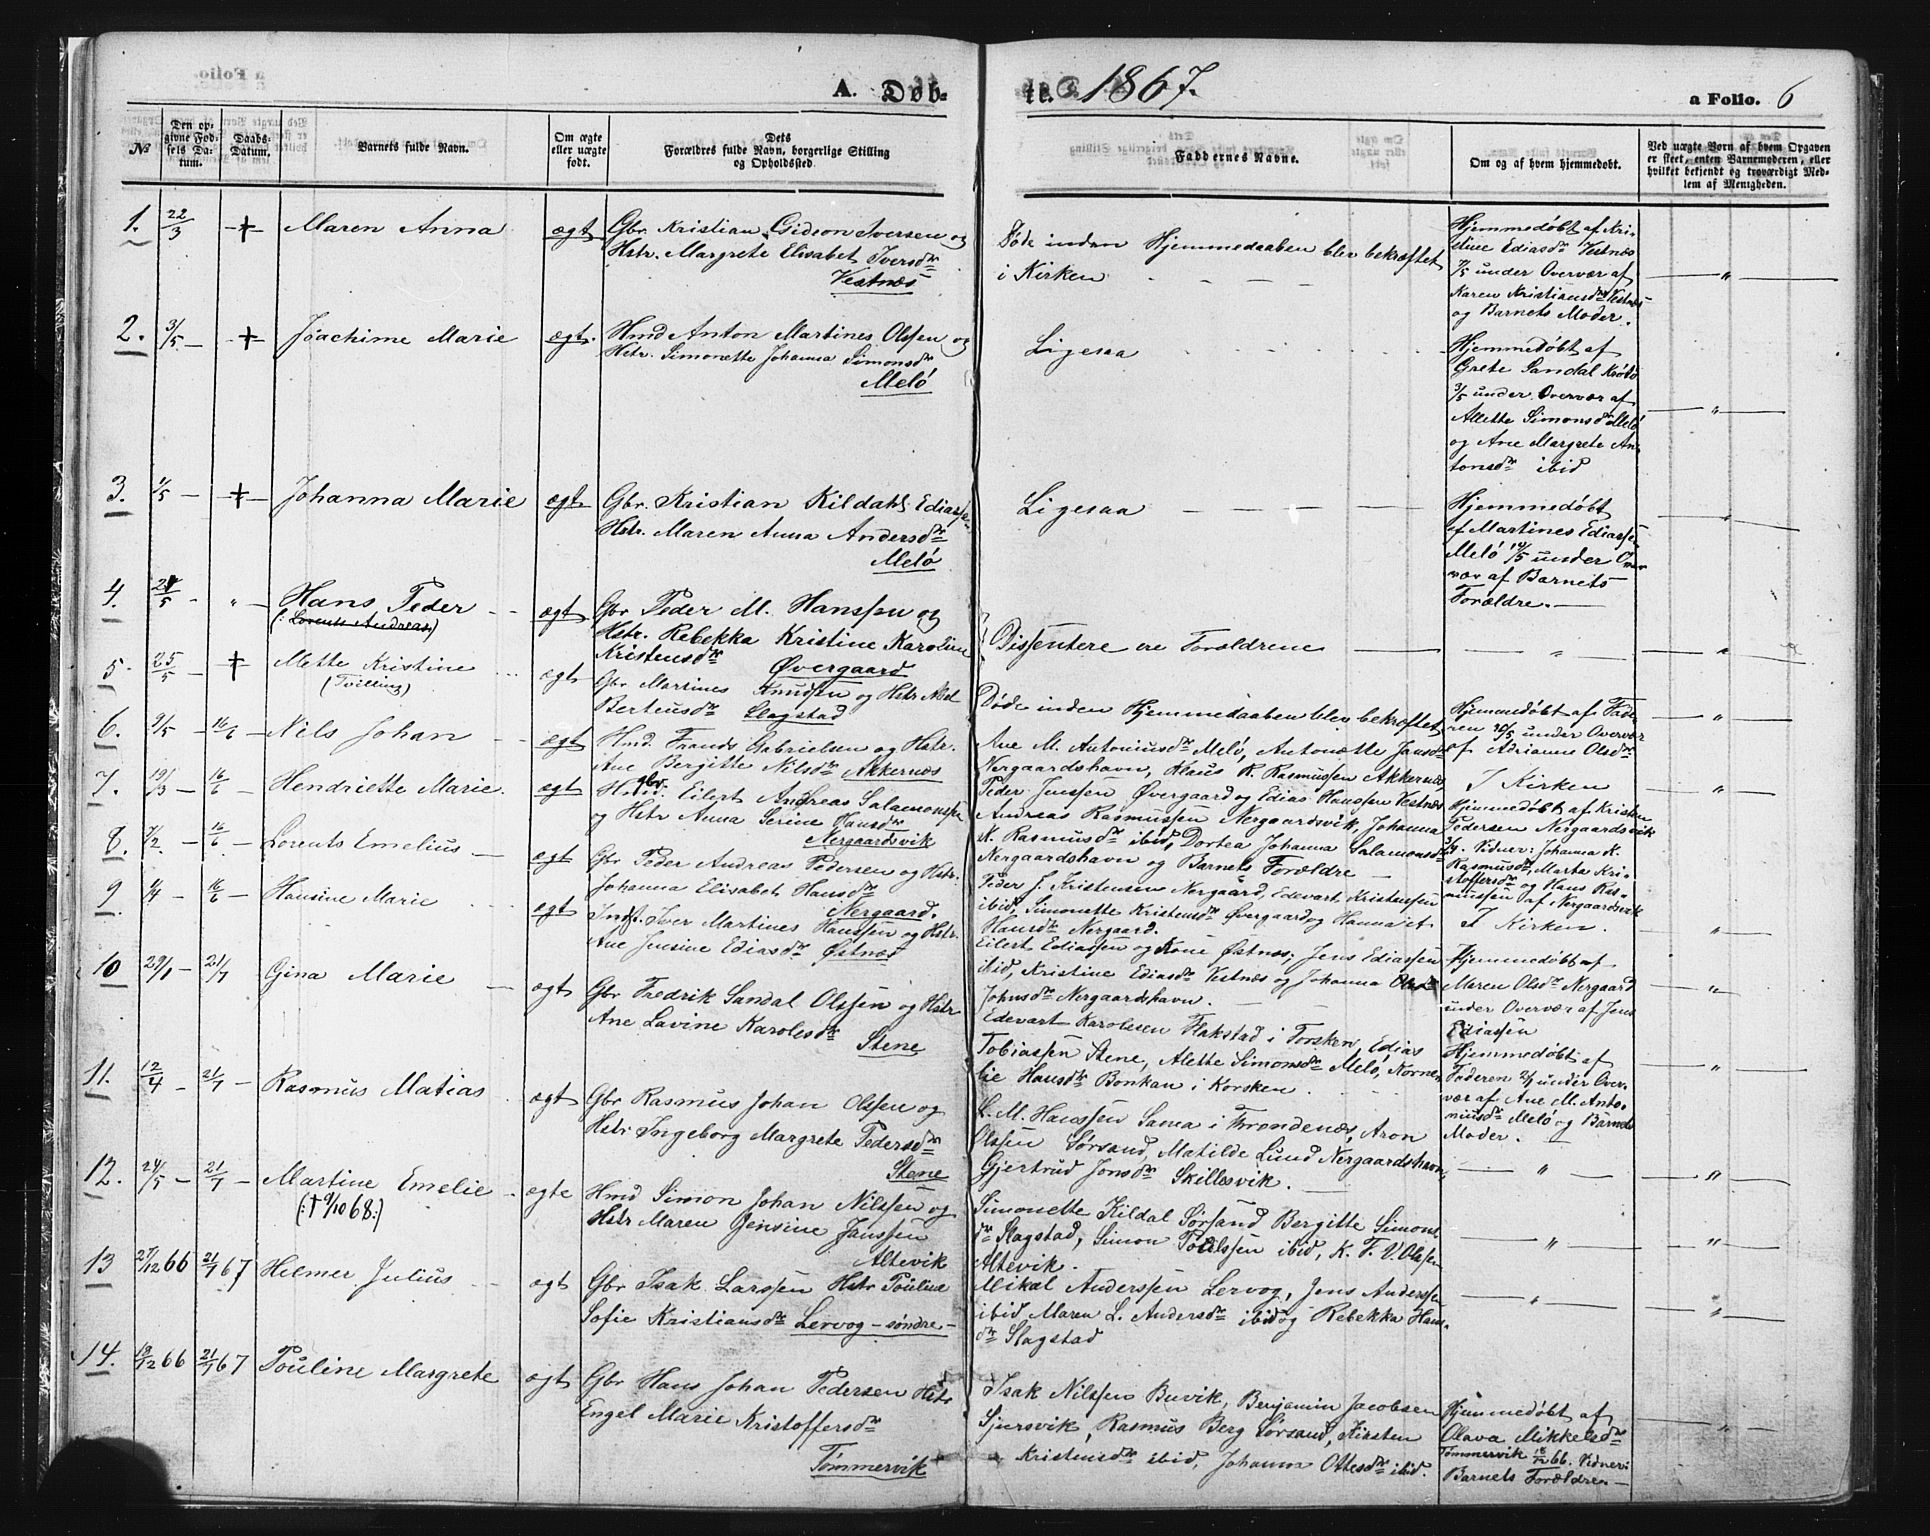 A. Døb-
te. 1867.
a Folio. 6
№
Den opgivne Fødsels Datum.
Daabs-Datum.
Barnets fulde Navn.
Om ægte eller uægte født.
Dets Forældres fulde Navn, borgerlige Stilling og Opholdssted.
Faddernes Navne.
Om og af hvem hjemmedøbt.
Ved uægte Børn af hvem Opgaven er skeet, enten Barnemoderen, eller hvilket bekjendt og troværdigt Medlem af Menigheden.
1. 22/3 — † — Maren Anna ægt Gbr. Kristian Gideon Iversen og
Hstr. Margrete Elisabet Iversdtr
Vestnæs
Døde inden Hjemmedaaben blev bekræftet
i Kirken
Hjemmedøbt af Kri-
stine Ediasdtr Vestnæs
7/5 under Overvær af
Karen Kristiansdtr Vestnæs
og Barnets Moder.
2. 3/5 — † Joachime Marie ægt. Hmd Anton Martines Olssen og
Hstr. Simonette Johanna Simonsdtr
Melö
Ligesaa
Hjemmedøbt af
Grete Sandal
3/5 under Overvær af
Alette Simonsdtr Melö
og Ane Margrete An-
tonsdtr ibid
3. 1/5 — † — Johanna Marie ægt. Gbr. Kristian Kildahl Ediassen
Hstr. Maren Anna Andersdtr
Melö
Ligesaa
Hjemmedøbt
af Martines Ediassen
Melö 10/5 under Over-
vær af Barnets
Forældre. —
4. 21/5 — „ — Hans Peder ægt Gbr Peder M. Hanssen og
(: Lorents Andreas:)
Hstr. Rebekka Kristine Karoline
Kristensdtr Øvergaard
Dissentere ere Forældrene
5. 25/5 — † Mette Kristine ægt Gbr Martines Knudsen og Hstr
(Tvilling)
Berteusdtr Slagstad
Døde inden Hjemmedaaben blev bekræftet
Hjemmedøbt af Fade-
ren 30/5 under Overvær
af Adrianne Olsdtr
6. 9/5 — 16/6 — Nils Johan ægt Hmd. Frands Gabrielsen og Hstr.
Ane Bergitte Nilsdtr Akkernæs
Ane M. Antoniusdtr Melö, Antonette Jansdtr
Nergaardshavn, Klaus R. Rasmussen Akkernæs
Peder Jenssen Øvergaard og Edias Hanssen Vestnæs
I Kirken
7. 19/3 — 16/6 — Hendriette Marie. ægt Gbr. Eilert Andreas Salamonssen
og Hstr Anna Serine Hansdtr
Nergaardsvik
Andreas Rasmussen Nergaardsvik, Johanna
K. Rasmusdtr ibid, Dortea Johanna Salamonsdtr
Nergaardshavn og Barnets Forældre —
Hjemmedøbt af Kristen
Pedersen Nergaardsvik
Vidner: Johanna K.
Rasmusdtr, Marta Kri-
stoffersdtr og Hans Ras-
mussen af Nergaardsvik
8. 7/2 — 16/6 — Lorents Emelius ægt Gbr Peder Andreas Pedersen og Hstr.
Johanna Elisabet Hansdtr
Nergaard.
Peder J. Kristensen Nergaard, Edevart Kristensen
ibid, Simonette Kristensdtr Øvergaard og Hanna
Hansdtr Nergaard.
I Kirken.
9. 4/4 — 16/6 — Hansine Marie ægt Indst. Iver Martines Hanssen og Hstr.
Ane Jensine Ediasdtr Østnæs
Eilert Ediassen og Kone Østnæs; Jens Ediassen
ibid, Kristine Ediasdtr Vestnæs og Johanna
Johnsdtr Nergaardshavn.
Hjemmedøbt af
Maren Olsdtr Nergaard
under Overvær af Jens
Ediassen
10 29/1 — 21/7 Gina Marie ægt Gbr Fredrik Sandal Olssen og Hstr
Ane Lavine Karolesdtr
Stene
Edevart Karolesen Flakstad i Torsken, Edias
Tobiassen Stene, Alette Simonsdtr Melö, Korne-
lie Hansdtr Bonkan i Korsken
Hjemmedøbt af
Faderen 2/1 under Over-
vær af Ane M. Anto-
niusdtr Melö og Barnets
Moder.
11. 12/4 — 21/7 — Rasmus Matias ægt Gbr Rasmus Johan Olssen og
Hstr Ingeborg Margrete Pedersdtr
Stene
L. M. Hanssen Sama i Trondenæs, Aron
Olssen Sørsand, Matilde Lund Nergaardshavn,
Gjertrud Jonsdtr Skillesvik.
12. 24/5 — 21/7 — Martine Emelie ægte Hmd Simon Johan Nilssen og
(: † 9/10 68:)
Hstr Maren Jensine Janssen
Altevik
Simonette Kildal Sørsand Bergitte Simons-
dtr Slagstad, Simon Poulssen ibid, K. F. V. Olssen
Altevik.
13 27/12 66 21/7 67 Hilmer Julius ægt Gbr Isak Larssen Hstr Pouline
Sofie Kristiansdtr Lervog-söndre-
Mikal Anderssen Lervog, Jens Anderssen
ibid Maren L. Andersdtr ibid og Rebekka Hans-
dtr Slagstad
14. 19/12 66 21/7 67 Pouline Margrete ægt Gbr Hans Johan Pedersen Hstr
Engel Marie Kristoffersdtr
Tömmervik
Isak Nilssen Buvik, Benjamin Jacobsen
Sjursvik, Rasmus Berg Sörsand, Kirsten
Kristensdtr ibid, Johanna Ottesdtr ibid.
Hjemmedøbt af
Olava Mikkelsdtr
Tömmervik 18/12 66. Vidner:
Barnets Forældre. —